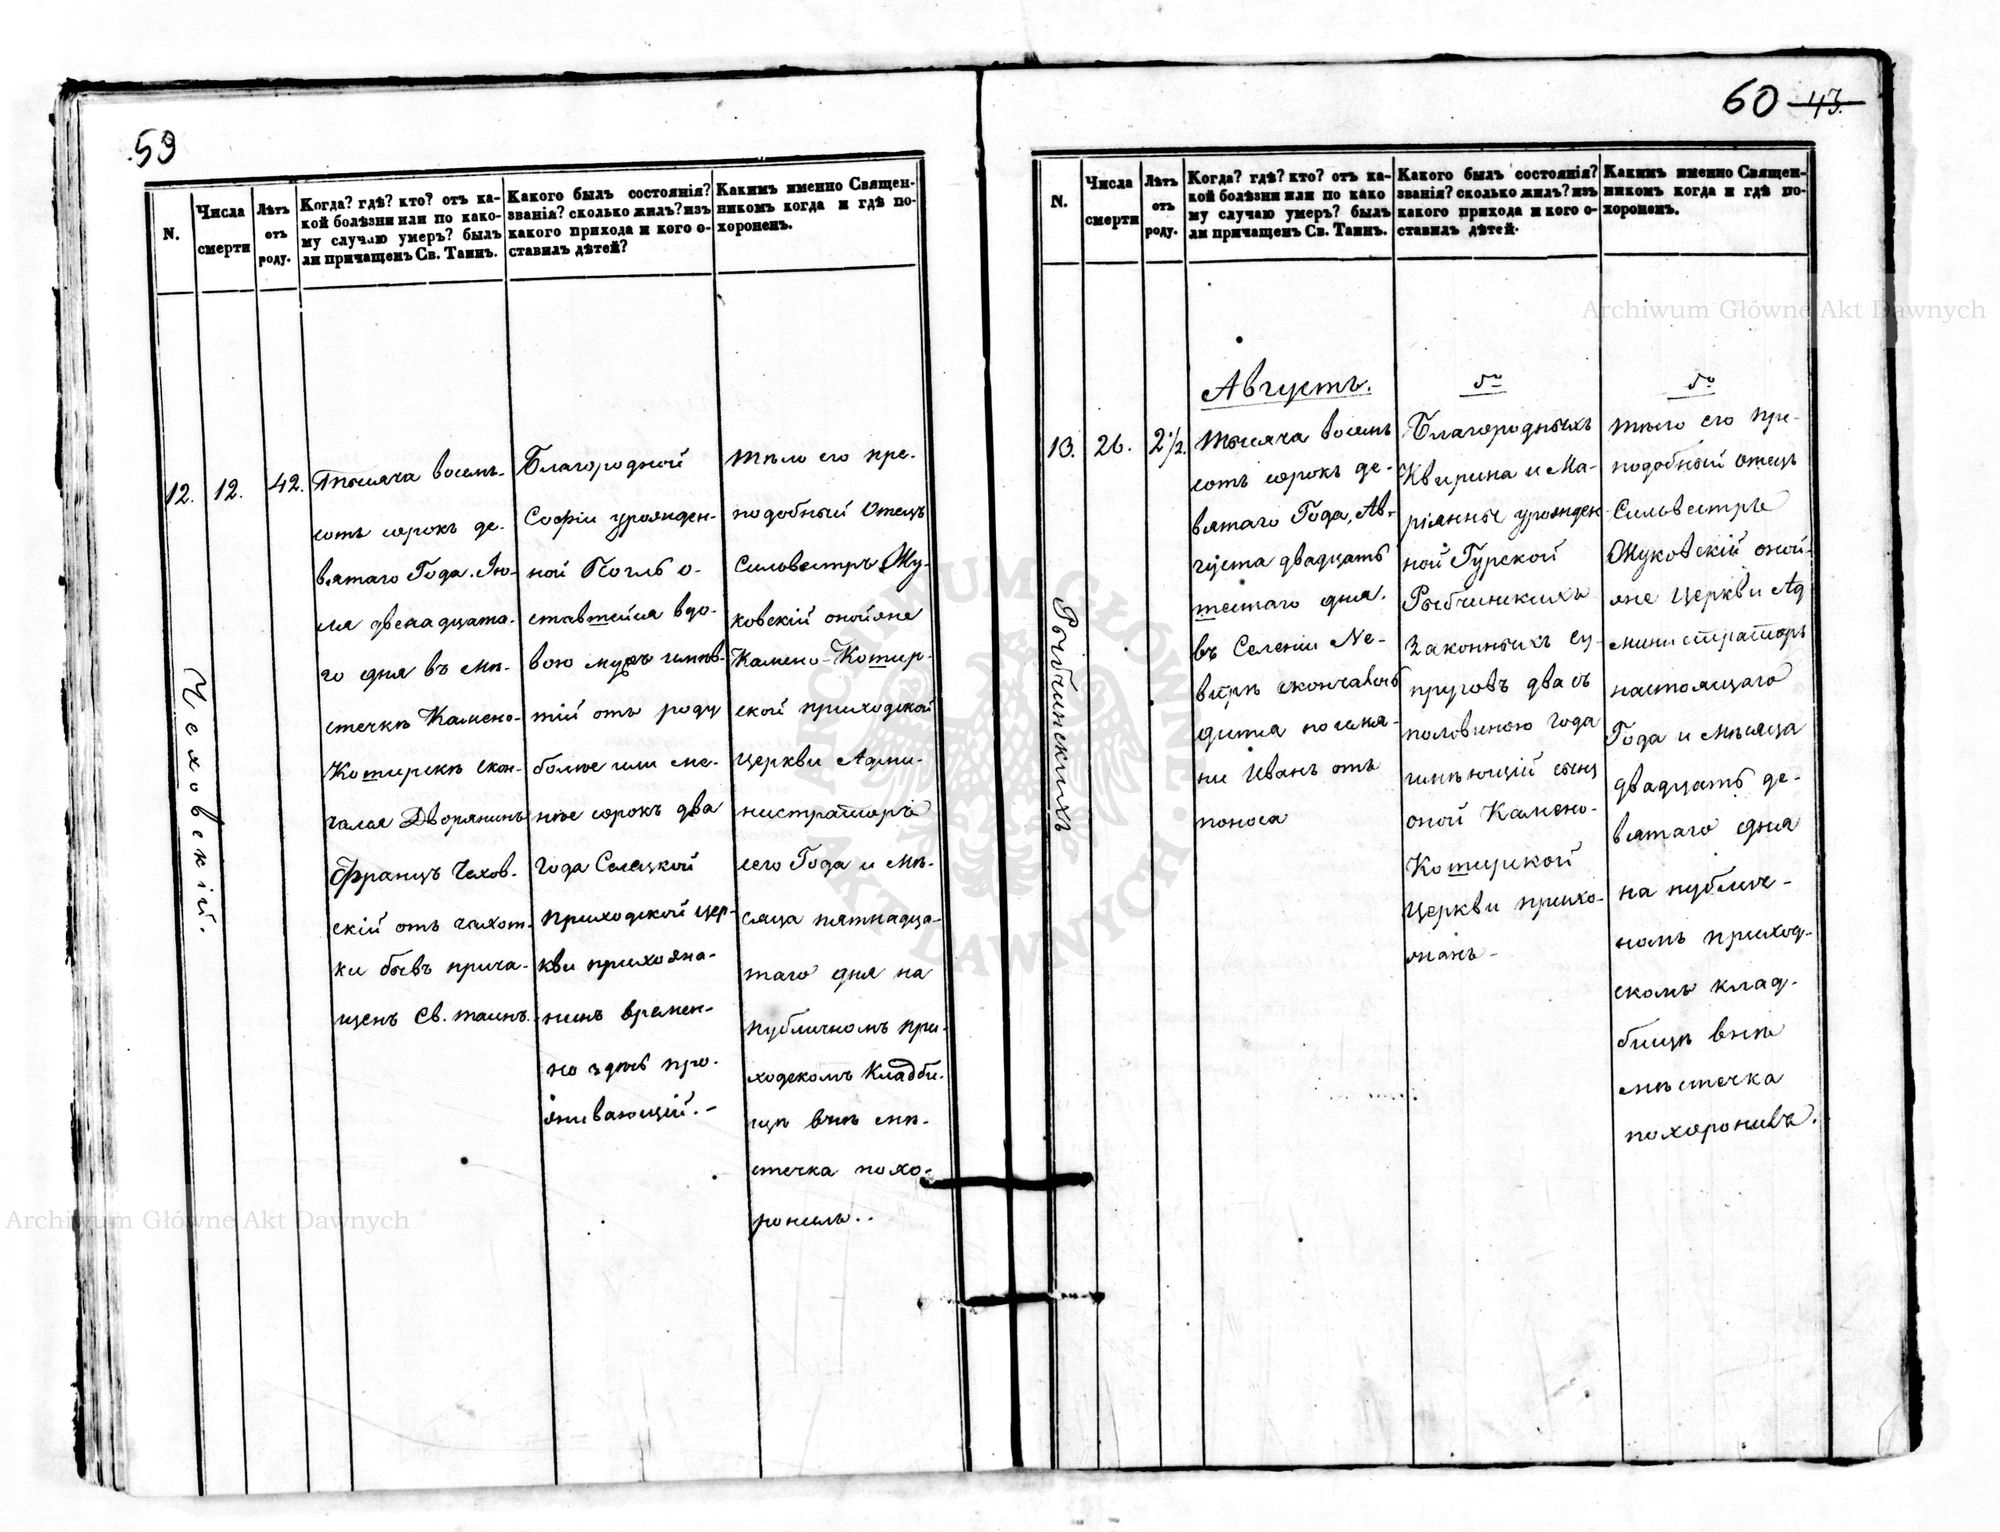 59
N.
Числа
смерти
Лѣтъ
отъ
роду.
Когда? гдѣ? кто? отъ ка-
кой болѣзни или по како-
му случаю умеръ? былъ
ли причащенъ Св. Таинъ.
Какого былъ состоянія?
званія? сколько жилъ? изъ
какого прихода и кого о-
ставилъ дѣтей?
Какимъ именно Священ-
никомъ когда и гдѣ по-
хороненъ.
Чеховскій.
12.
12.
42.
Тысяча восемь-
сотъ сорокъ де-
вятаго Года. Ію-
ля двенадцата-
го дня въ мѣ-
стечкѣ Камено-
Котирскѣ скон-
чался Дворянинъ
Францъ Чехов-
скій отъ чахот-
ки бывъ прича-
щенъ Св. таинъ.
Благородной
Софіи урожден-
ной о-
ставшейся вдо-
вою мужъ имѣв-
шій отъ роду
болѣе или ме-
нѣе сорокъ два
года Селецкой
приходской цер-
кви прихожа-
нинъ времен-
но здѣсь про-
живающій.-
тѣло его пре-
подобный Отецъ
Сильвестръ Жу-
ковскій онойже
Камено-Котир-
ской приходской
церкви Адми-
нистраторъ
сего Года и мѣ-
сяца пятнадца-
таго дня на
публичномъ при-
ходскомъ Кладби-
щѣ внѣ мѣ-
стечка похо-
ронилъ..
60 43.
N.
Числа
смерти
Лѣтъ
отъ
роду.
Когда? гдѣ? кто? отъ ка-
кой болѣзни или по како
му случаю умеръ? былъ
ли причащенъ Св. Таинъ.
Какого былъ состоянія?
званія? сколько жилъ? изъ
какого прихода и кого о-
ставилъ дѣтей.
Какимъ именно Священ-
никомъ когда и гдѣ по-
хороненъ.
Рыбчинскихъ
Августъ.
13.
26.
2½.
тысяча восемь
сотъ сорокъ де-
вятаго Года, Ав-
густа двадцать
шестаго дня.
въ Селеніи Не-
вирѣ скончалось
дитя по имя-
ни Иванъ отъ
поноса
Благородныхъ
Квирина и Ма-
ріанны урожден
ной Гурской
Рыбчинскихъ
Законныхъ Су-
пруговъ два съ
половиною года
имѣющій сынъ
оной Камено-
Котирской
Церкви прихо-
жанъ-
тѣло его пре-
подобный отецъ
Сильвестръ
Жуковскій оной-
же Церкви Ад
министраторъ
настоящаго
Года и мѣсяца
двадцать де-
вятаго дня
на публич-
номъ приход-
скомъ клад-
бищѣ внѣ
мѣстечка
похоронилъ.
Archiwum Główne Akt Dawnych
Archiwum Główne Akt Dawnych
ARCHIWUM GŁÓWNE AKT DAWNYCH